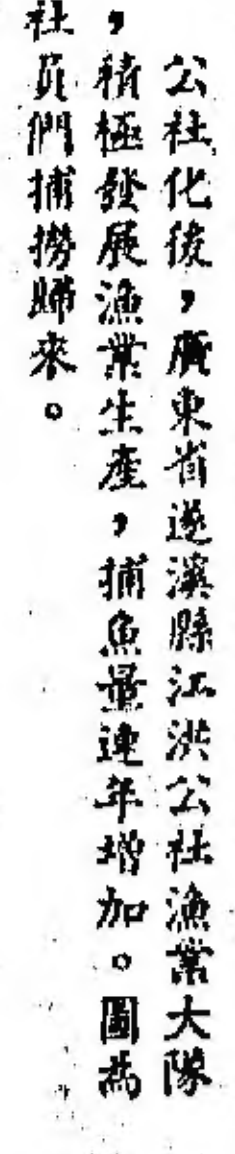 公社化後，廣東省遂溪縣江洪公社漁業大隊
，積極發展漁業生產，捕魚量連年增加。圖為
社員們捕撈歸來。